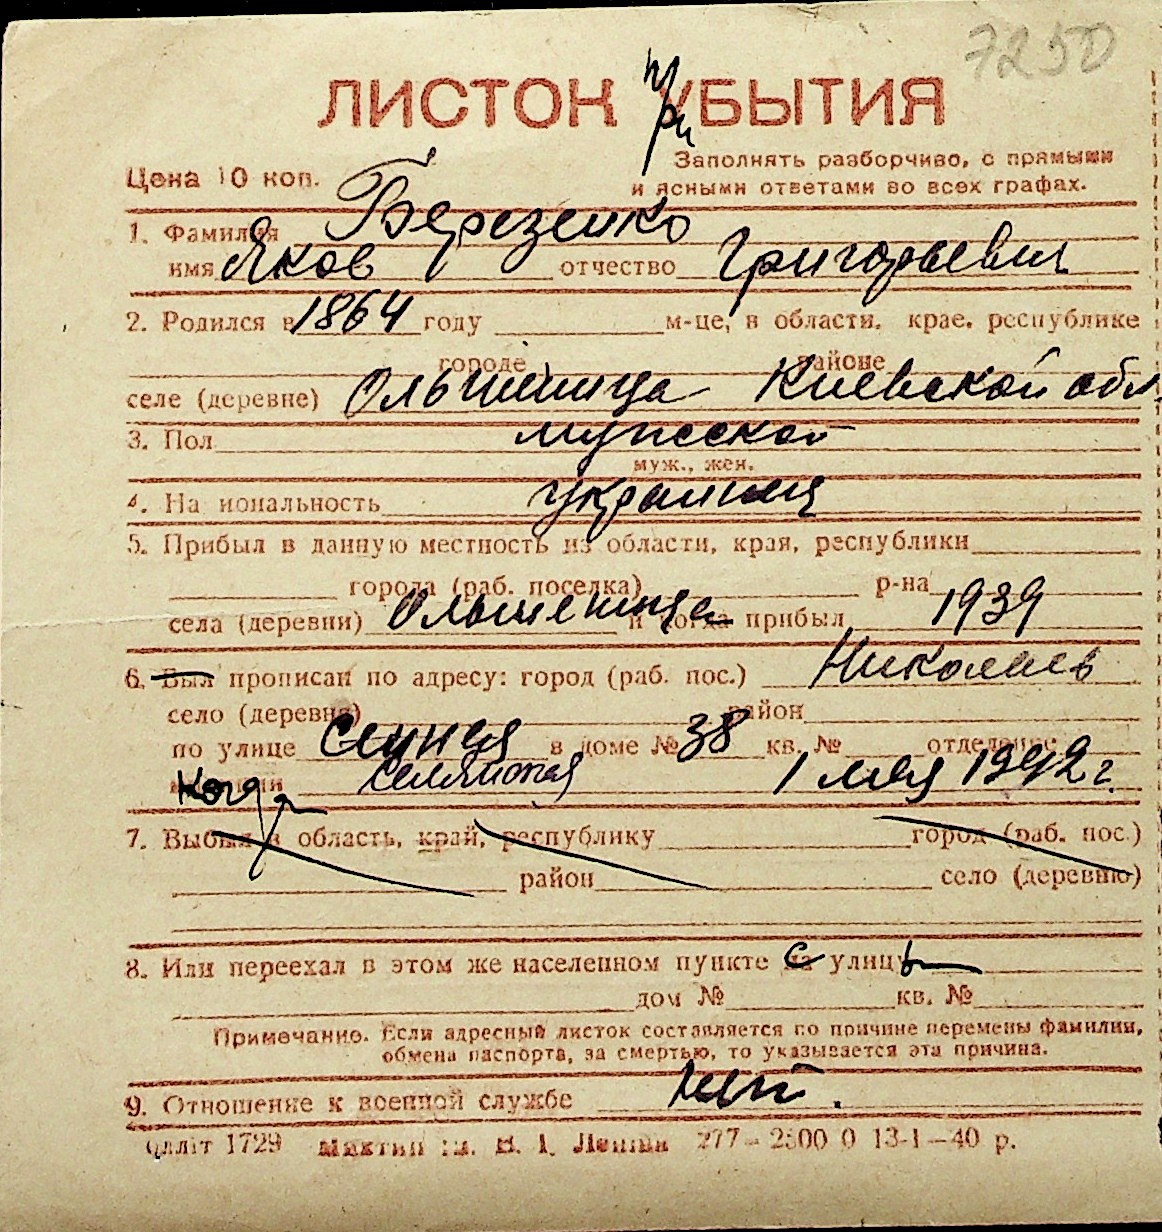 7250
ЛИСТОК при УБЫТИЯ
Цена 10 коп.
Заполнять разборчиво, с прямыми
и ясными ответами во всех графах.
1. Фамилия Березенко
имя Яков отчество Григорьевич
2. Родился в 1864 году м-це, в области, крае, республике
городе районе
селе (деревне) Ольшаница Киевской обл.
3. Пол мужской
муж., жен.
4. На иональность украинец
5. Прибыл в данную местность из области, края, республики
города (раб. поселка) р-на
села (деревни) Ольшеница и когда прибыл 1939
6. Был прописан по адресу: город (раб. пос.) Николаев
село (деревня) район
по улице Сенная в доме № 38 кв. № отделение
когда 1 мая 1942 г.
7. Выбыл в область, край, республику город (раб. пос.)
район село (деревню)
8. Или переехал в этом же населенном пункте с улицы
дом № кв. №
Примечание. Если адресный листок составляется по причине перемены фамилии,
обмена паспорта, за смертью, то указывается эта причина.
9. Отношение к военной службе нет.
1729 ім. В. І. Леніна 277 – 2500 0 13-1–40 р.